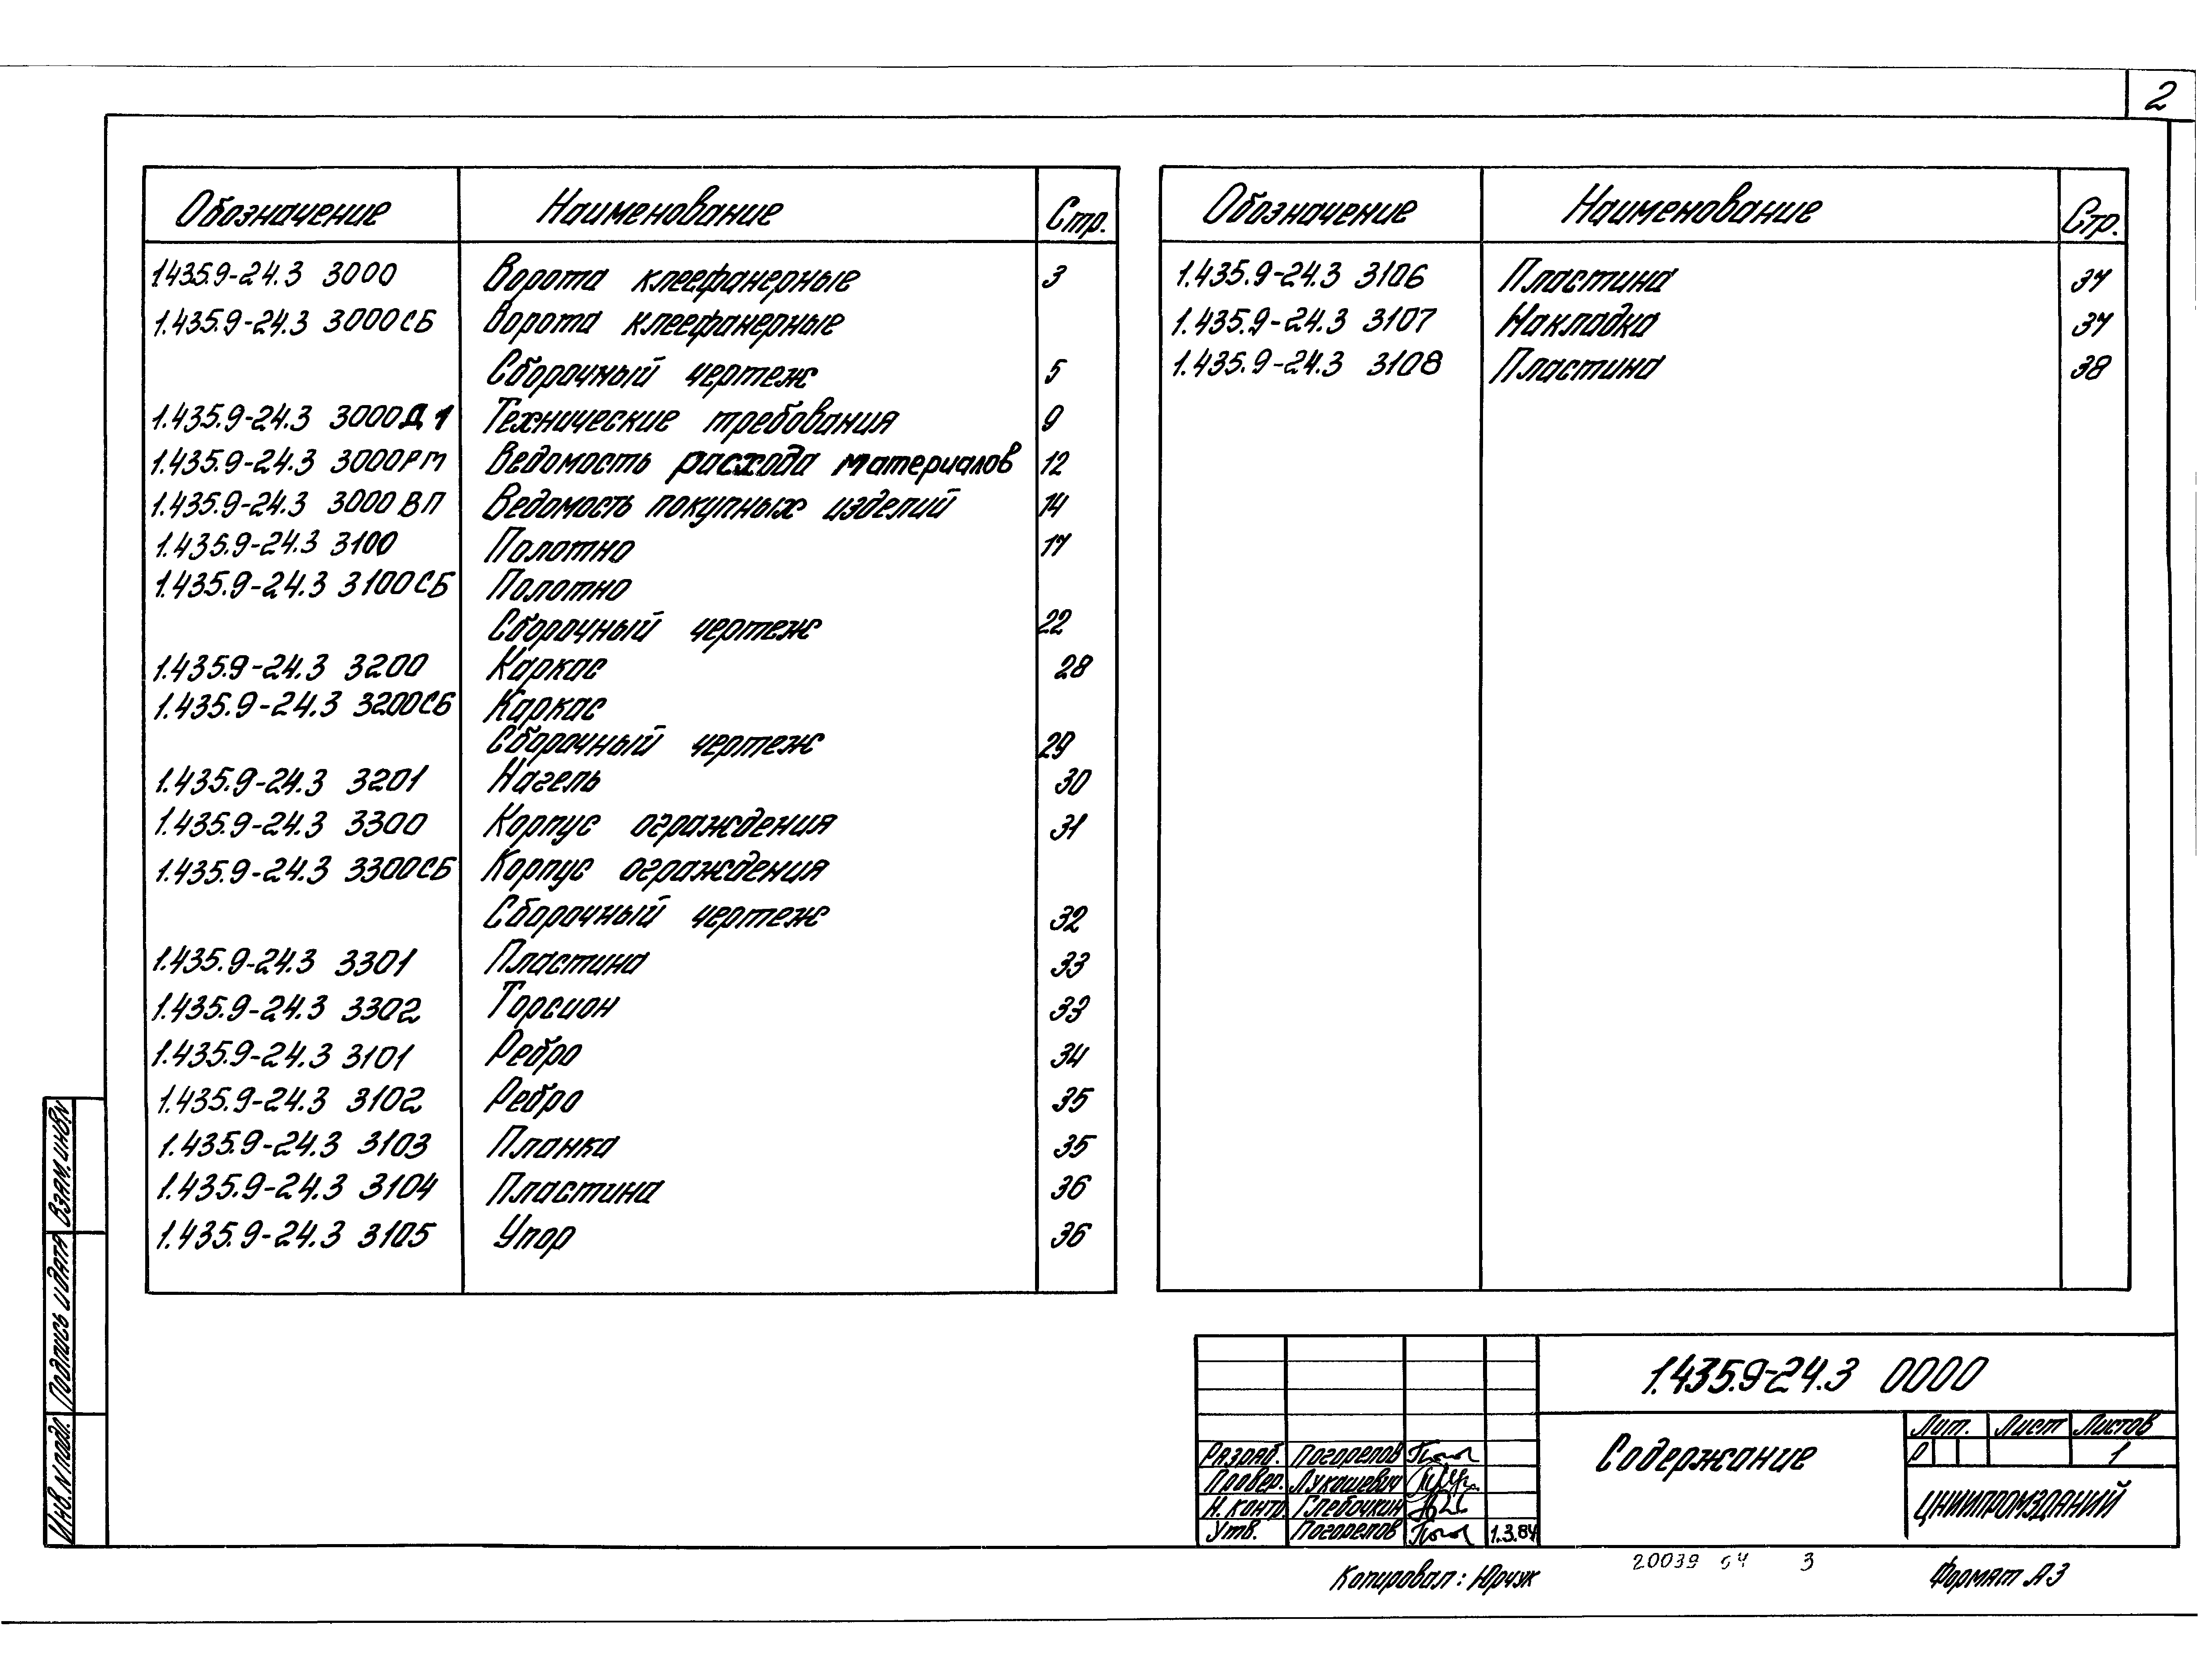 2
Обозначение Наименование Стр.
1435.9-24.3 3000 Ворота клеефанерные 3
1.435.9-24.3 3000СБ Ворота клеефанерные
Сборочный чертеж 5
1.435.9-24.3 3000Д1 Технические требования 9
1.435.9-24.3 3000РМ Ведомость расхода материалов 12
1.435.9-24.3 3000ВП Ведомость покупных изделий 14
1.435.9-24.3 3100 Полотно 17
1.435.9-24.3 3100СБ Полотно
Сборочный чертеж 22
1.435.9-24.3 3200 Каркас 28
1.435.9-24.3 3200СБ Каркас
Сборочный чертеж 29
1.435.9-24.3 3201 Нагель 30
1.435.9-24.3 3300 Корпус ограждения 31
1.435.9-24.3 3300СБ Корпус ограждения
Сборочный чертеж 32
1.435.9-24.3 3301 Пластина 33
1.435.9-24.3 3302 Торсион 33
1.435.9-24.3 3101 Ребро 34
1.435.9-24.3 3102 Ребро 35
1.435.9-24.3 3103 Планка 35
1.435.9-24.3 3104 Пластина 36
1.435.9-24.3 3105 Упор 36
Обозначение Наименование Стр.
1.435.9-24.3 3106 Пластина 37
1.435.9-24.3 3107 Накладка 37
1.435.9-24.3 3108 Пластина 38
Взам. инв.№
Подпись и дата
Инв. № подл.
1.435.9-24.3 0000
Содержание
Лит. Лист Листов
Р 1
ЦНИИПРОМЗДАНИЙ
Разраб. Погорелов
Провер. Лукашевич
Н. контр. Глебочкин
Утв. Погорелов 1.3.84
Копировал: Юрчук
20039 04 3
Формат А3